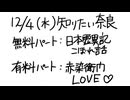 12/4(木)知りたい奈良
無料パート:日本霊異記
こぼれ話
有料パート:赤染衛門
LOVE♡